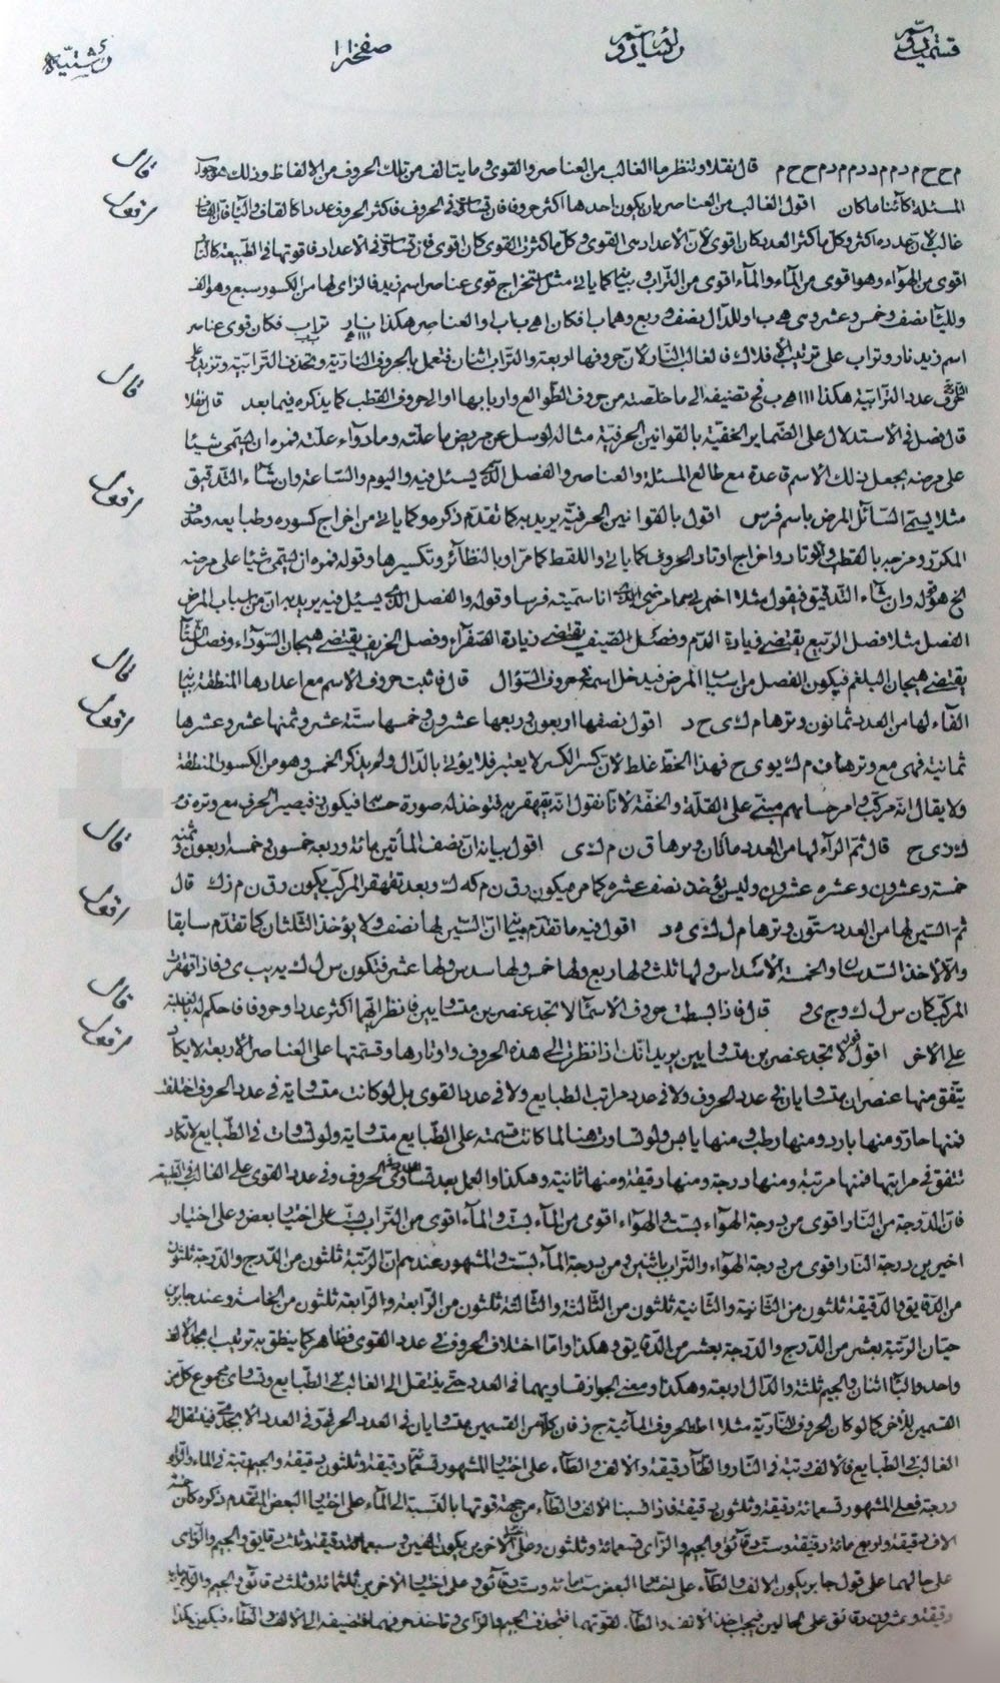 م ح ح م د م م د د م م د م ح ح م قال نقلا وتنظر ما الغالب من العناصر والقوى وما يتالف من تلك الحروف من الالفاظ وذلك هو جواب قال
المسئلة كائنا ما كان اقول الغالب من العناصر بان يكون احدها اكثر حروفا فان تساوى في الحروف فاكثر الحروف عددا كالقاف والياء فان القاف
غالب لان عدده اكثر وكل ما كثر العدد كان اقوى لان الاعداد هى القوى وكل ما كثرت القوى كان اقوى فان تساوى في الاعداد فاقوتها فى الطبيعة كالنار
اقوى من الهواء وهو اقوى من الماء والماء اقوى من التراب بيانه كما ياتى مثل استخراج قوى عناصر اسم زيد فالزاى لها من الكسور سبع وهو الف
وللياء نصف وخمس وعشر وهى ه ب ا وللدال نصف وربع وهما ب ا فكان ا ه ب ا ب ا والعناصر هكذا تراب فكان قوى عناصر
اسم زيد نار وتراب على ترتيب الافلاك فالغالب النار لان حروفها اربعة والتراب اثنان فتعمل بالحروف النارية وتحذف الترابية وتزيد على
عدد الترابية هكذا ا ا ا ه ب ب ثم تضيفه الى ما خلصته من حروف الطوالع واربابها او الى حروف القطب كما يذكره فيما بعد قال نقلا
قال فصل فى الاستدلال على الضماير الخفية بالقوانين الحرفية مثاله لو سئل عن مريض ما علته وما دواء علته فمره ان يسمى شيئا
على مرضه يجعل ذلك الاسم قاعدة مع طالع المسئلة والعناصر والفصل الذى يسئل فيه واليوم والساعة وان شاء التدقيق
مثلا يسمى السائل المرض باسم فرس اقول بالقوانين الحرفية يريد به كما تقدم ذكره وكما ياتى من اخراج كسوره وطبايعه وحذف
المكرر ومزجه بالقطب والاوتاد واخراج اوتاد الحروف كما ياتى واللقط كما مر او بالنظائر وتكسيرها وقوله فمره ان يسمى شيئا على مرضه
الخ هو قوله وان شاء التدقيق فيقول مثلا اسم مرضى الذى انا سميته فرسا وقوله والفصل الذى يسئل فيه يريد به ان من اسباب المرض
الفصل مثلا فصل الربيع يقتضى زيادة الدم وفصل الصيف يقتضى زيادة الصفراء وفصل الخريف يقتضى هيجان السوداء وفصل الشتاء
يقتضى هيجان البلغم فيكون الفصل من اسباب المرض فيدخل اسمه فى حروف السؤال قال فاثبت حروف الاسم مع اعدادها المنطقة بيانه
الفاء لها من العدد ثمانون وترها م ك ى ح د اقول نصفها اربعون وربعها عشرون وخمسها ستة عشر وثمنها عشر وعشرها
ثمانية فهى مع وترها ف م ك يو ى ح فهذا الخط غلط لان كسر الكسر لا يعتبر فلا يؤتى بالدال ولم يذكر الخمس وهو من الكسور المنطقة
ولا يقال انه مركب وامر حسابهم مبنى على القلة والخفة لانا نقول انه يقهقر به فتوخذ له صورة حسا فيكون ز فيصير الحرف مع وتره ف م
ك ز ى ح قال ثم الراء لها من العدد مائتان وترها ق ن م ك ى اقول بيانه ان نصف المأتين مائة وربعه خمسون وخمسه اربعون وثمنه
خمسة وعشرون وعشره عشرون وليس يؤخذ نصف عشره كما مر فيكون ر ق ن م كه ك وبعد تقهقر المركب يكون ر ق ن م ز ك قال
ثم السين لها من العدد ستون وترها م ل ك ى ه د اقول فيه ما تقدم بيانه ان السين لها نصف ولا يؤخذ الثلثان كما تقدم سابقا
والا لاخذ السدسان والخمسة الاسداس ولها ثلث ولها ربع ولها خمس ولها سدس ولها عشر فتكون س ل ك يه يب ى و فاذا تقهقر
المركب كان س ل ك و ج ى و قال فاذا بسطت حروف الاسم لا تجد عنصرين متساويين فانظر ايهما اكثر عددا وحروفا فاحكم له بالغلبة
على الاخر اقول قوله لا تجد عنصرين متساويين يريد انك اذا نظرت الى هذه الحروف واوتارها وقسمتها على العناصر الاربعة لا يكاد
يتفق منها عنصران متساويان فى عدد الحروف ولا فى عدد مراتب الطبايع ولا فى عدد القوى بل لو كانت متساوية فى عدد الحروف اختلفت
فمنها حار ومنها بارد ومنها رطب ومنها يابس ولو تساوت هنا لما كانت قسمته على الطبايع متساوية ولو تساوت فى الطبايع لا تكاد
تتفق فى مراتبها فمنها مرتبة ومنها درجة ومنها دقيقة ومنها ثانية وهكذا والعمل بعد تساوى الحروف وفى عدد القوى على الغالب فى الطبيعة
فان الدرجة من النار اقوى من درجة الهواء بست والهواء اقوى من الماء بست والماء اقوى من التراب بست على اختيار بعض وعلى اختيار
اخرين درجة النار اقوى من درجة الهواء والتراب باثنين ومن درجة الماء بست والمشهور عندهم ان الرتبة ثلثون من الدرج والدرجة ثلثون
من الدقايق والدقيقة ثلثون من الثانية والثانية ثلثون من الثالثة والثالثة ثلثون من الرابعة والرابعة ثلثون من الخامسة وعند جابر بن
حيان الرتبة بعشر من الدرج والدرجة بعشر من الدقايق وهكذا واما اختلاف الحروف فى عدد القوى فظاهر كما ينطق به ترتيب ابجد الالف
واحد والباء اثنان والجيم ثلثة والدال اربعة وهكذا ومعنى الجواز تساويهما فى العدد حتى ينتقل الى الغالب فى الطبايع وتساوى مجموع كل من
القسمين للاخر كما لو كان الحروف النارية مثلا ا ط والحروف المائية ج ز فان كلا من القسمين متساويان فى العدد الحرفى وفى العدد الابجدى فينتقل الى
الغالب فى الطبايع فالالف رتبة فى النار والطاء دقيقة والالف والطاء على اختيار المشهور تسعمائة دقيقة وثلثون دقيقة والجيم رتبة فى الماء والزاء
درجة فعلى المشهور تسعمائة دقيقة وثلثون دقيقة فاذا نسبنا الالف والطاء من جهة قوتها بالنسبة الى الماء على اختيار البعض المتقدم ذكره كان خمسة
الاف دقيقة واربع مائة دقيقة وست دقائق والجيم والزاى تسعمائة وثلثون وعلى الاخرين يكون سبعمائة دقيقة وثلث دقايق والجيم والزاى
على حالهما على قول جابر يكون الالف والطاء على اختيار البعض ستمائة وست دقائق وعلى اختيار الاخرين ثلثمائة وثلث دقائق والجيم والزاى مائة
دقيقة وعشرون دقائق على الحالين فيجب اخذ الالف والطاء لقوتهما فتحذف الجيم والزاى وتاخذ حروفهما فتضيفه الى الالف والطاء فيكون هكذا